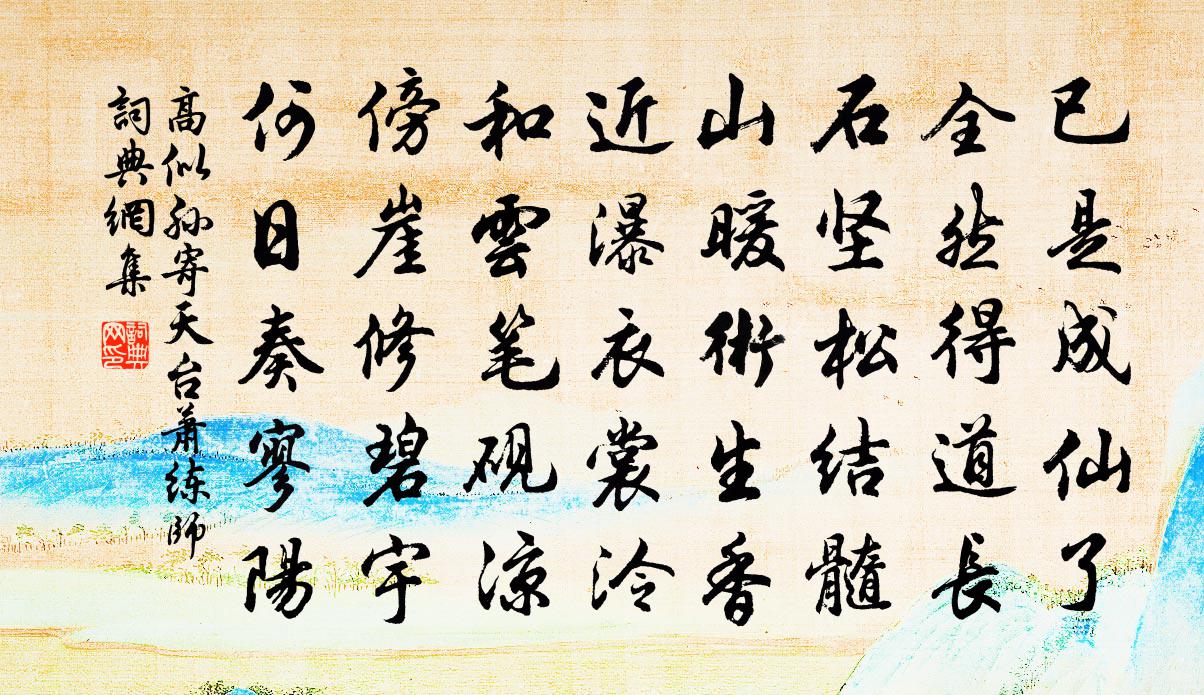 已是成仙了
全然得道長
石坚松结髓
山暖術生香
近瀑衣裳泠
和雲笔砚凉
傍崖修碧宇
何日奏寥陽
高似孙寄天台萧练師
詞典網集
詞典网印